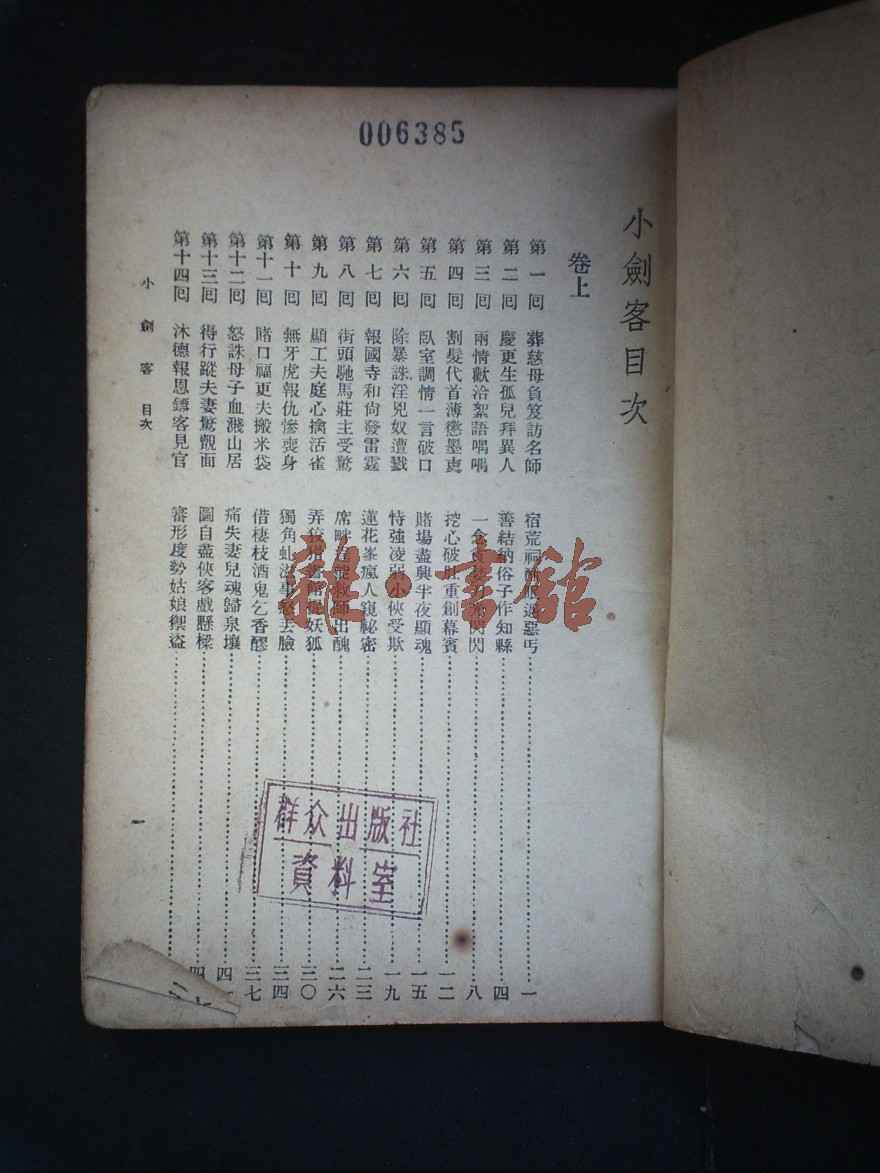 006385
小劍客目次
卷上
第一回 葬慈母負笈訪名師 宿荒祠 退惡丐 一
第二回 慶更生孤兒拜異人 善結納俗子作知縣 四
第三回 兩情歡洽絮語喁喁 一念 閃閃 八
第四回 割髮代首薄懲墨吏 挖心破肚重創幕賓 一二
第五回 臥室調情一言破口 賭場盡興半夜顯魂 一五
第六回 除暴誅淫兇奴遭戮 恃強凌弱小俠受欺 一九
第七回 報國寺和尚發雷霆 蓮花峯瘋人窺祕密 二三
第八回 街頭馳馬莊主受驚 席畔 救師出醜 二六
第九回 顯工夫庭心擒活雀 弄狡獪書館捉妖狐 三〇
第十回 無牙虎報仇慘喪身 獨角虬滋事怒丟臉 三四
第十一回 賭口福更夫搬米袋 借棲枝酒鬼乞香醪 三七
第十二回 怒誅母子血濺山居 痛失妻兒魂歸泉壤 四一
第十三回 得行蹤夫妻驚覿面 圖自盡俠客戲懸樑 四
第十四回 沐德報恩鏢客見官 審形度勢姑娘禦盜
小劍客 目次
一
群众出版社
資料室
雜·書館